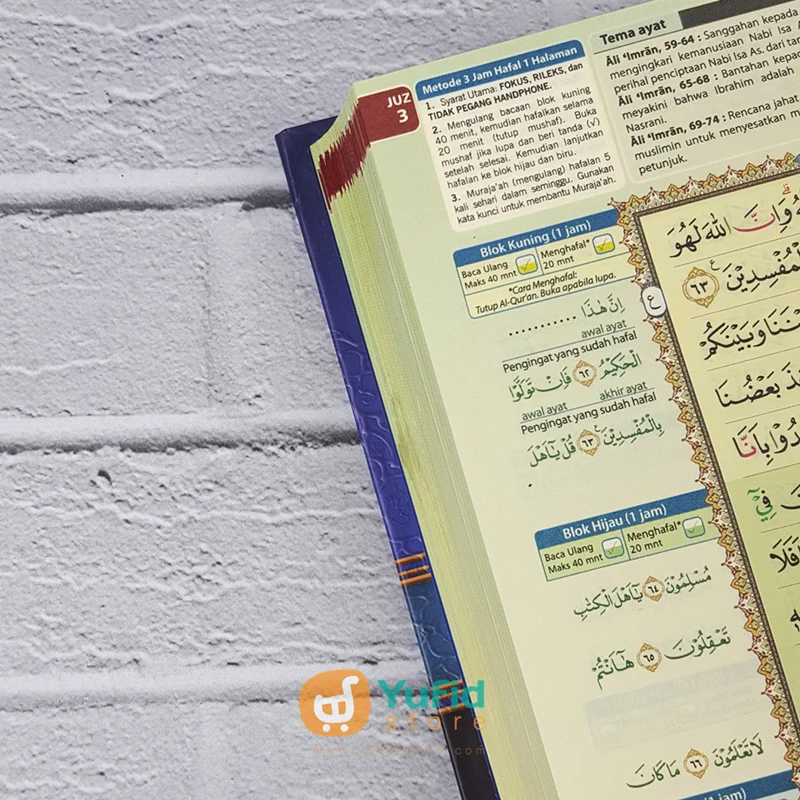 JUZ
3
Metode 3 Jam Hafal 1 Halaman
1. Syarat Utama: FOKUS, RILEKS, dan
TIDAK PEGANG HANDPHONE.
2. Mengulang bacaan blok kuning
40 menit, kemudian hafalkan selama
20 menit (tutup mushaf). Buka
mushaf jika lupa dan beri tanda (√)
setelah selesai. Kemudian lanjutkan
hafalan ke blok hijau dan biru.
3. Muraja'ah (mengulang) hafalan 5
kali sehari dalam seminggu. Gunakan
kata kunci untuk membantu Muraja'ah.
Tema ayat
Āli 'Imrān, 59-64 : Sanggahan kepada
mengingkari kemanusiaan Nabi Isa
perihal penciptaan Nabi Isa As. dari
Āli 'Imrān, 65-68 : Bantahan
meyakini bahwa Ibrahim adalah
Nasrani.
Āli 'Imrān, 69-74 : Rencana jahat
muslimin untuk menyesatkan
petunjuk.
Blok Kuning (1 jam)
Baca Ulang
Maks 40 mnt
Menghafal*
20 mnt
*Cara Menghafal:
Tutup Al-Qur'an. Buka apabila lupa.
اِنَّ هٰذَا ...........
awal ayat
Pengingat yang sudah hafal
الْحَكِيْمُ ٦٢ فَاِنْ تَوَلَّوْا
awal ayat akhir ayat
Pengingat yang sudah hafal
بِالْمُفْسِدِيْنَ ٦٣ قُلْ يٰٓاَهْلَ
Blok Hijau (1 jam)
Baca Ulang
Maks 40 mnt
Menghafal*
20 mnt
مُسْلِمُوْنَ ٦٤ يٰٓاَهْلَ الْكِتٰبِ
تَعْقِلُوْنَ ٦٥ هٰٓاَنْتُمْ
لَا تَعْلَمُوْنَ ٦٦ مَا كَانَ
(1 jam)
وَاِنَّ اللّٰهَ لَهُوَ
٦٣
ع
وَبَيْنَكُمْ
بَعْضُنَا
بِاَنَّا
فِيْٓ
فَلَا
Yufid
store